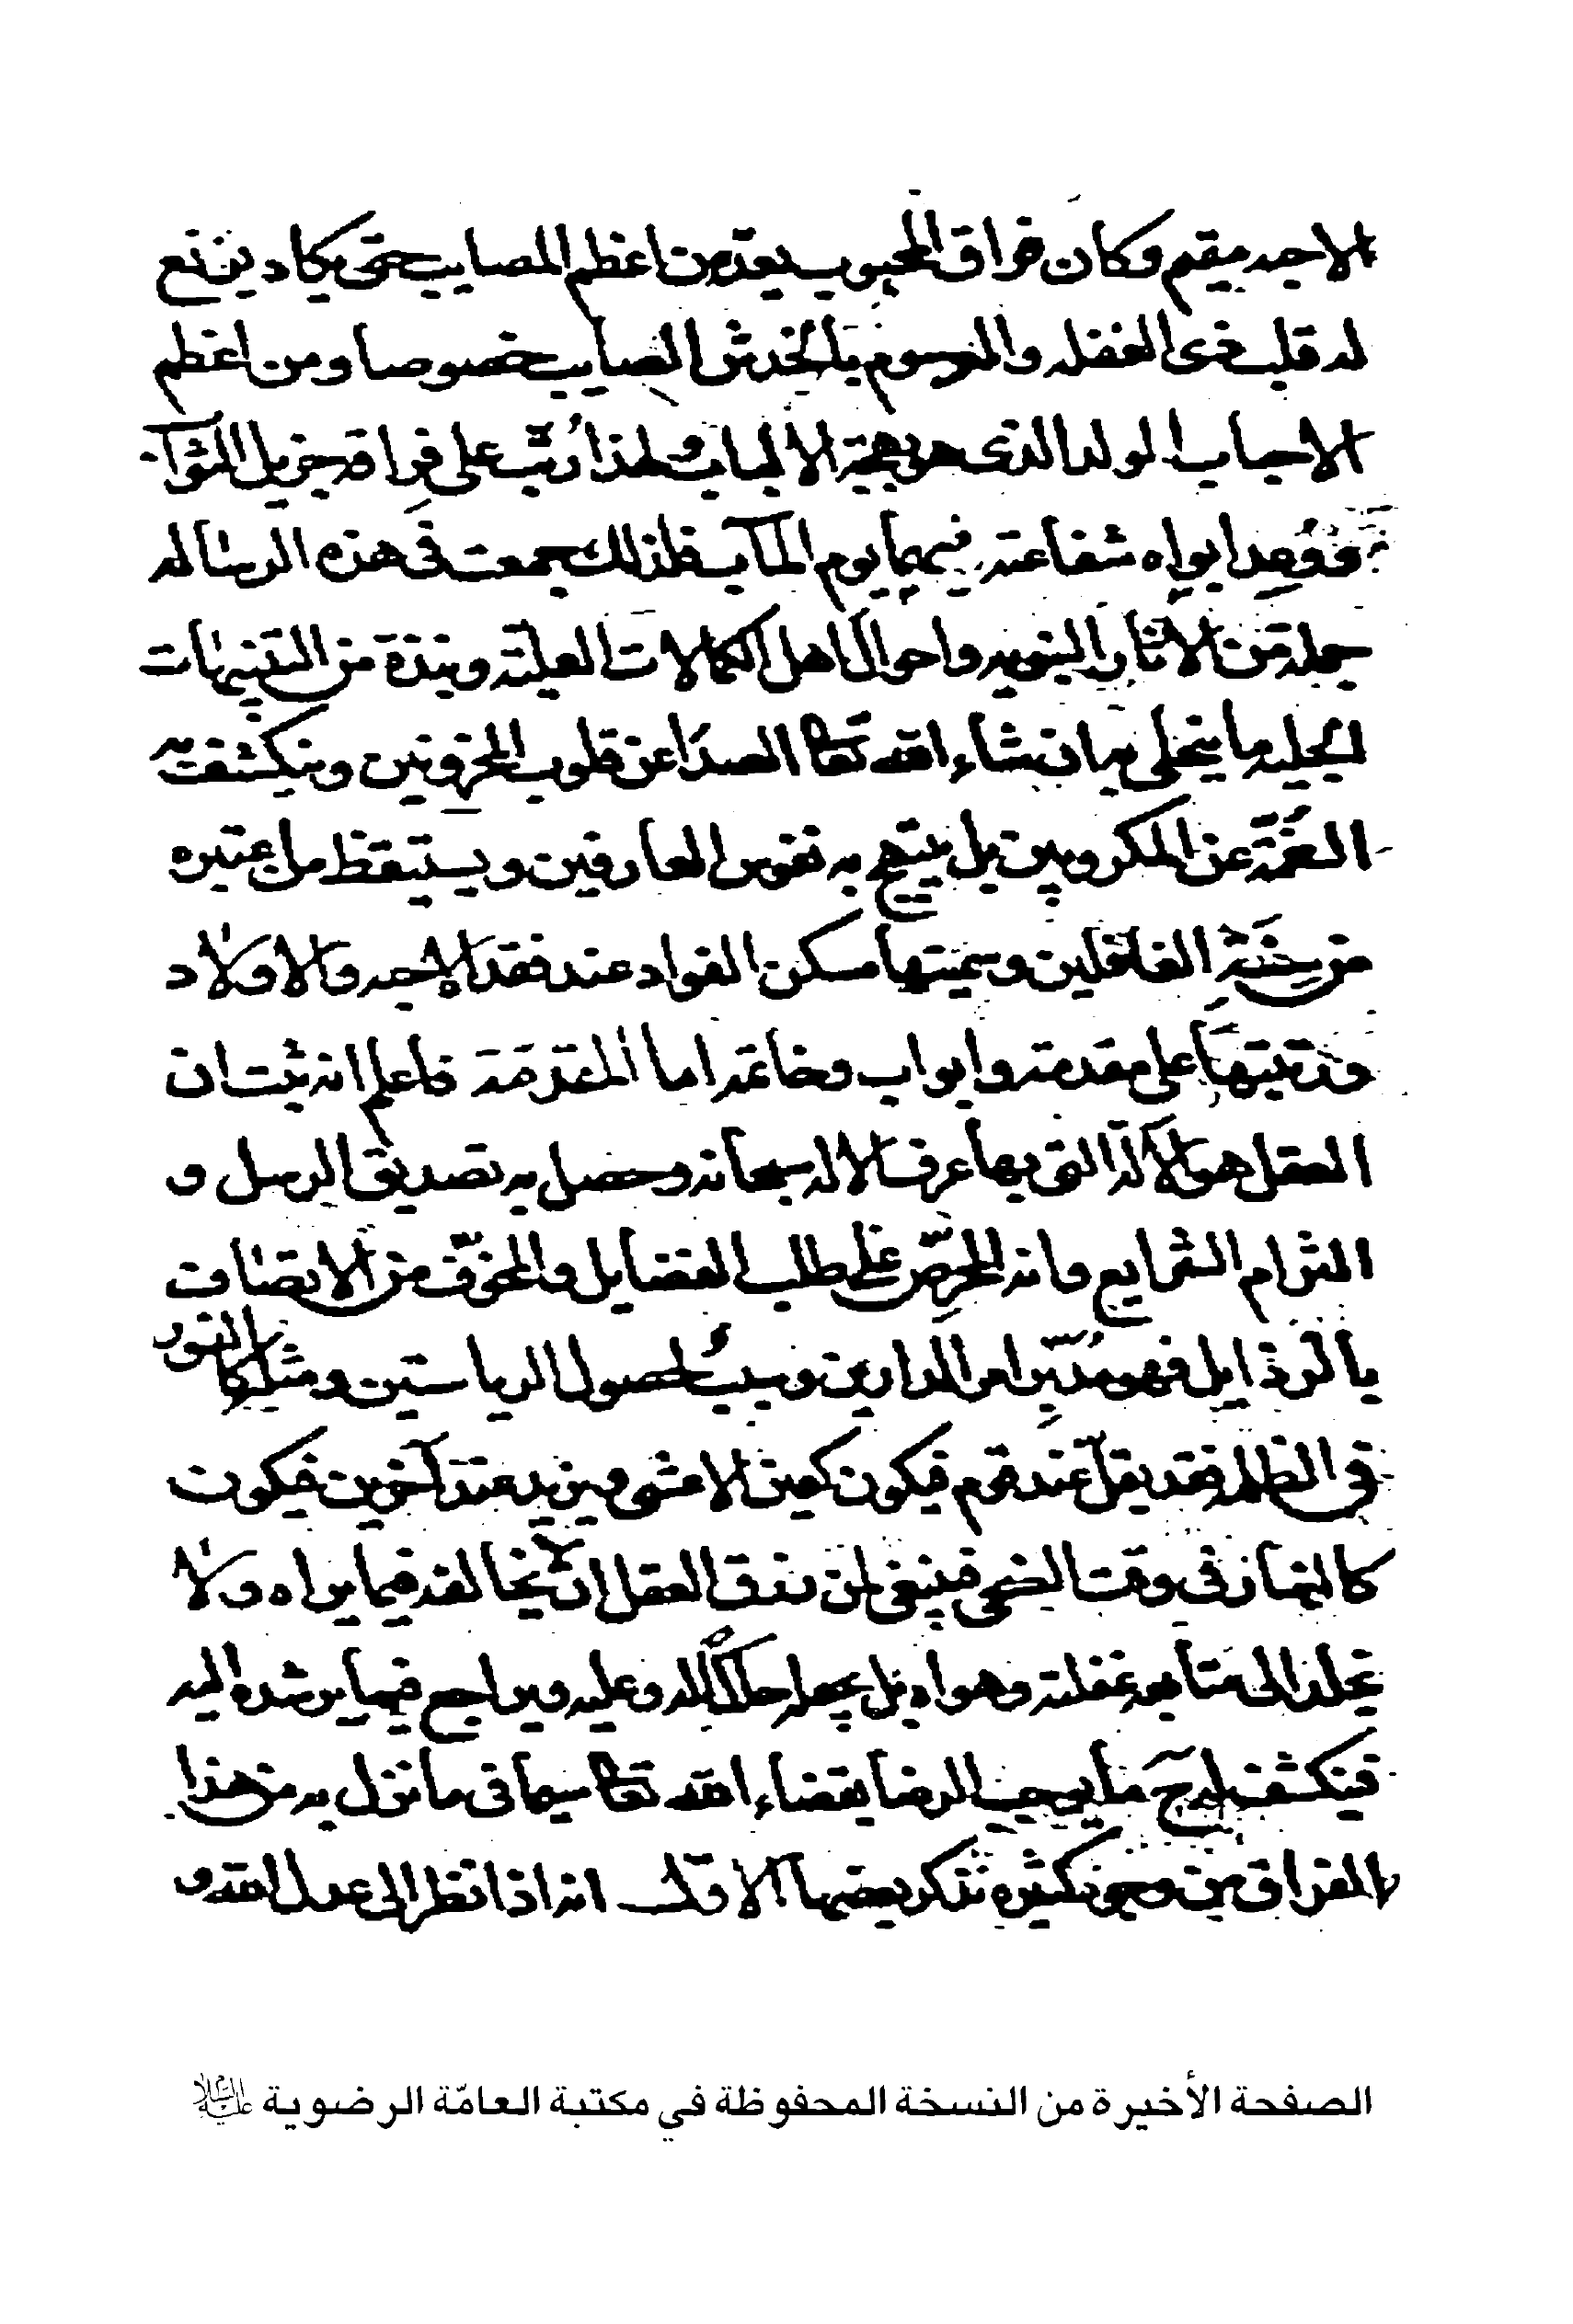 الاحبه مقيم وكان فراق المحبوب يعدّ من اعظم المصايب حتى يكاد يزيغ
له قلب ذى العقل والموسوم بالحدس الصايب خصوصا ومن اعظم
الاحباب الولد الذى هو مهجة الالباب ولهذا رُتّب على فراقه جزيل الثواب
ووُعِد ابواه شفاعته فيهما يوم المآب فلذلك جمعت فى هذه الرساله
جملة من الاثار النبويه واحوال اهل الكمالات العليّة ونبذة من التنبيهات
الجليه ما ينجلى به ان شاء الله تعا الصدَا عن قلوب المحزونين وينكشف به
الغُمّة عن المكروبين بل يبتهج به نفوس العارفين ويستيقظ من اعتبره
من سِنَةِ الغافلين وسميتها مسكن الفواد عند فقد الاحبه والاولاد
ورتبتها على مقدمة وابواب وخاتمه اما المقدّمَة فاعلم انه ثبت ان
العقل هو الآلة التى بها عرف الاله سبحانه وحصل به تصديق الرسل و
التزام الشرايع وانه المحرِّض على طلب الفضايل والمخوّف من الاتصاف
بالرذايل فهو مُدَبِّر امر الدارين وسببٌ لحصول الرياستين ومثله كالنور
فى الظلمه فقد يقل عند قوم فيكون كعين الاعشى ويزيد عند آخرين فيكون
كالنهار فى وقت الضحى فينبغى لمن رزق العقل ان لا يخالفه فيما يراه ولا
يخلد الى متابعه غفلته وهواه بل يجعله حاكماً له وعليه ويراجع فيما يرشده اليه
فينكشف له ح ما يوجب الرضا بقضاء الله تعا سيما فى ما نزل به من هذا
الفراق من وجوه كثيره نذكر بعضها الاول انه اذا نظر الى عدل الله و
الصفحة الأخيرة من النسخة المحفوظة في مكتبة العامّة الرضوية عليه السلام